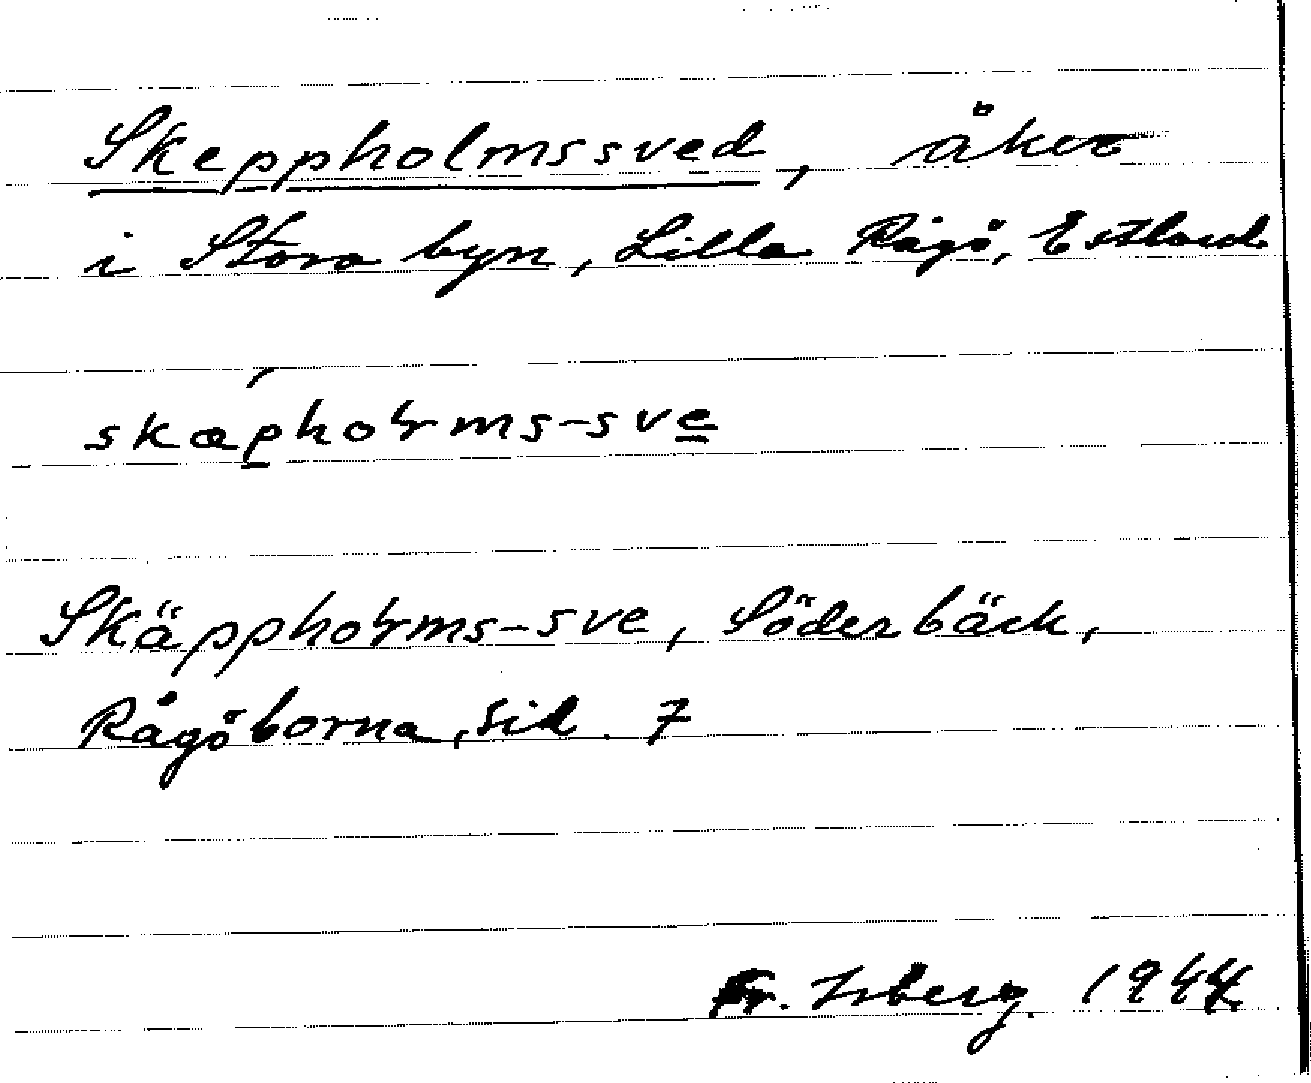 Skeppholmssved, åker
i Stora byn, Lilla Rågö, Estland
skap̲´hoɽms-sve̲
Skäpphoɽms-sve, Söderbäck,
Rågöborna, sid. 7
Fr. Isberg. 1944